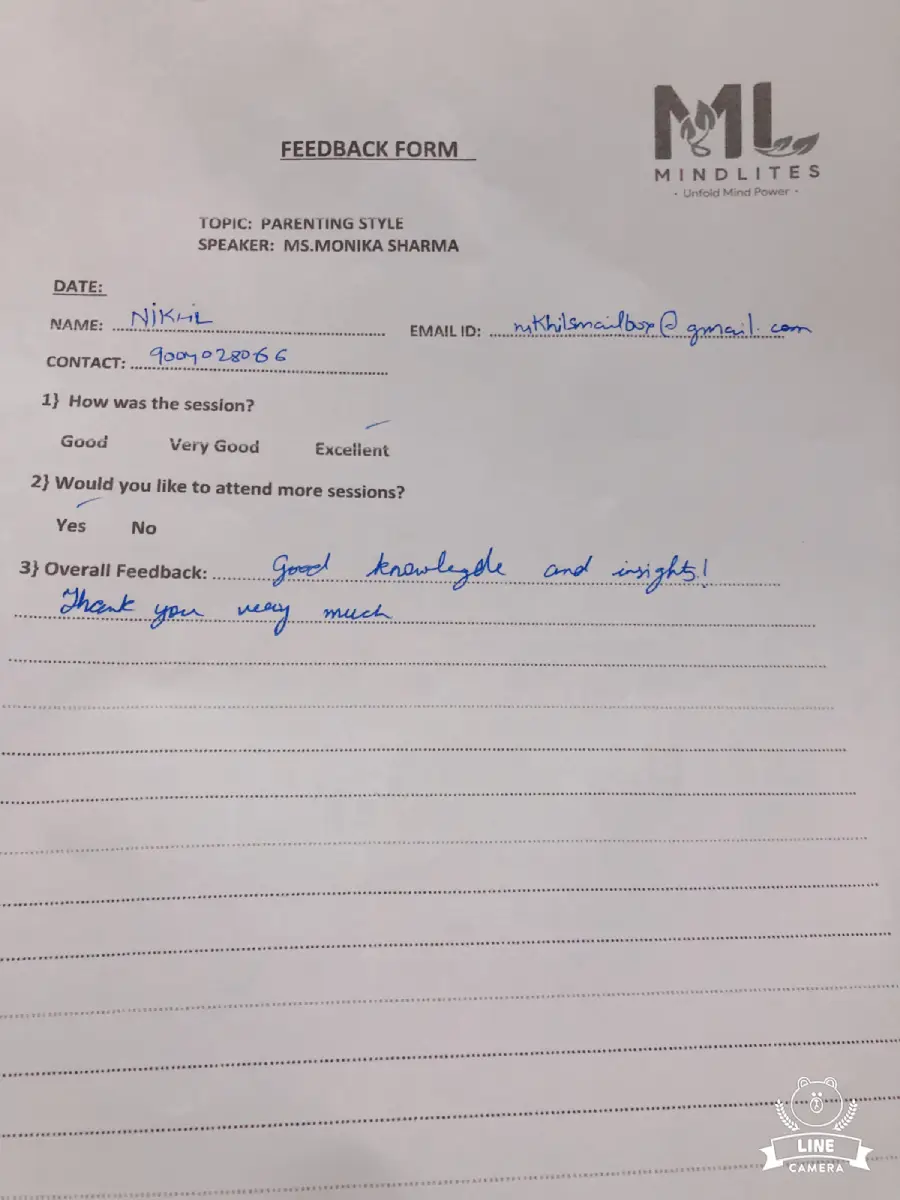 ML
MINDLITES
- Unfold Mind Power -
FEEDBACK FORM
TOPIC: PARENTING STYLE
SPEAKER: MS.MONIKA SHARMA
DATE:
NAME: NIKHIL EMAIL ID: nikhilsmailbox@gmail.com
CONTACT: 9004028066
1} How was the session?
Good Very Good Excellent
2} Would you like to attend more sessions?
Yes No
3} Overall Feedback: Good knowlegde and insights!
Thank you very much
LINE
CAMERA